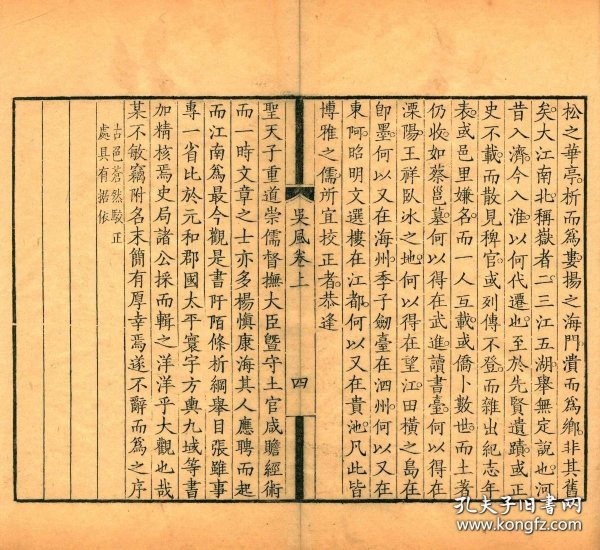 松之華亭析而為婁揚之海門潰而為鄉非其舊
矣大江南北稱嶽者二三江五湖舉無定說也河
昔入濟今入淮以何代遷也至於先賢遺蹟或正
史不載而散見稗官或列傳不登而雜出紀志年
表或邑里嫌名而一人互載或僑卜數世而土著
仍收如蔡邕墓何以得在武進讀書臺何以得在
溧陽王祥臥冰之地何以得在望江田橫之島在
即墨何以又在海州季子劍臺在泗州何以又在
東阿昭明文選樓在江都何以又在貴池凡此皆
博雅之儒所宜校正者恭逢
吳風卷上
四
聖天子重道崇儒督撫大臣暨守土官咸贍經術
而一時文章之士亦多楊慎康海其人應聘而起
而江南為最今觀是書阡陌條析綱舉目張雖事
專一省比於元和郡國太平寰宇方輿九域等書
加精核焉史局諸公採而輯之洋洋乎大觀也哉
某不敏竊附名末簡有厚幸焉遂不辭而為之序
古色蒼然駁正
處具有據依
孔夫子旧书网
www.kongfz.com